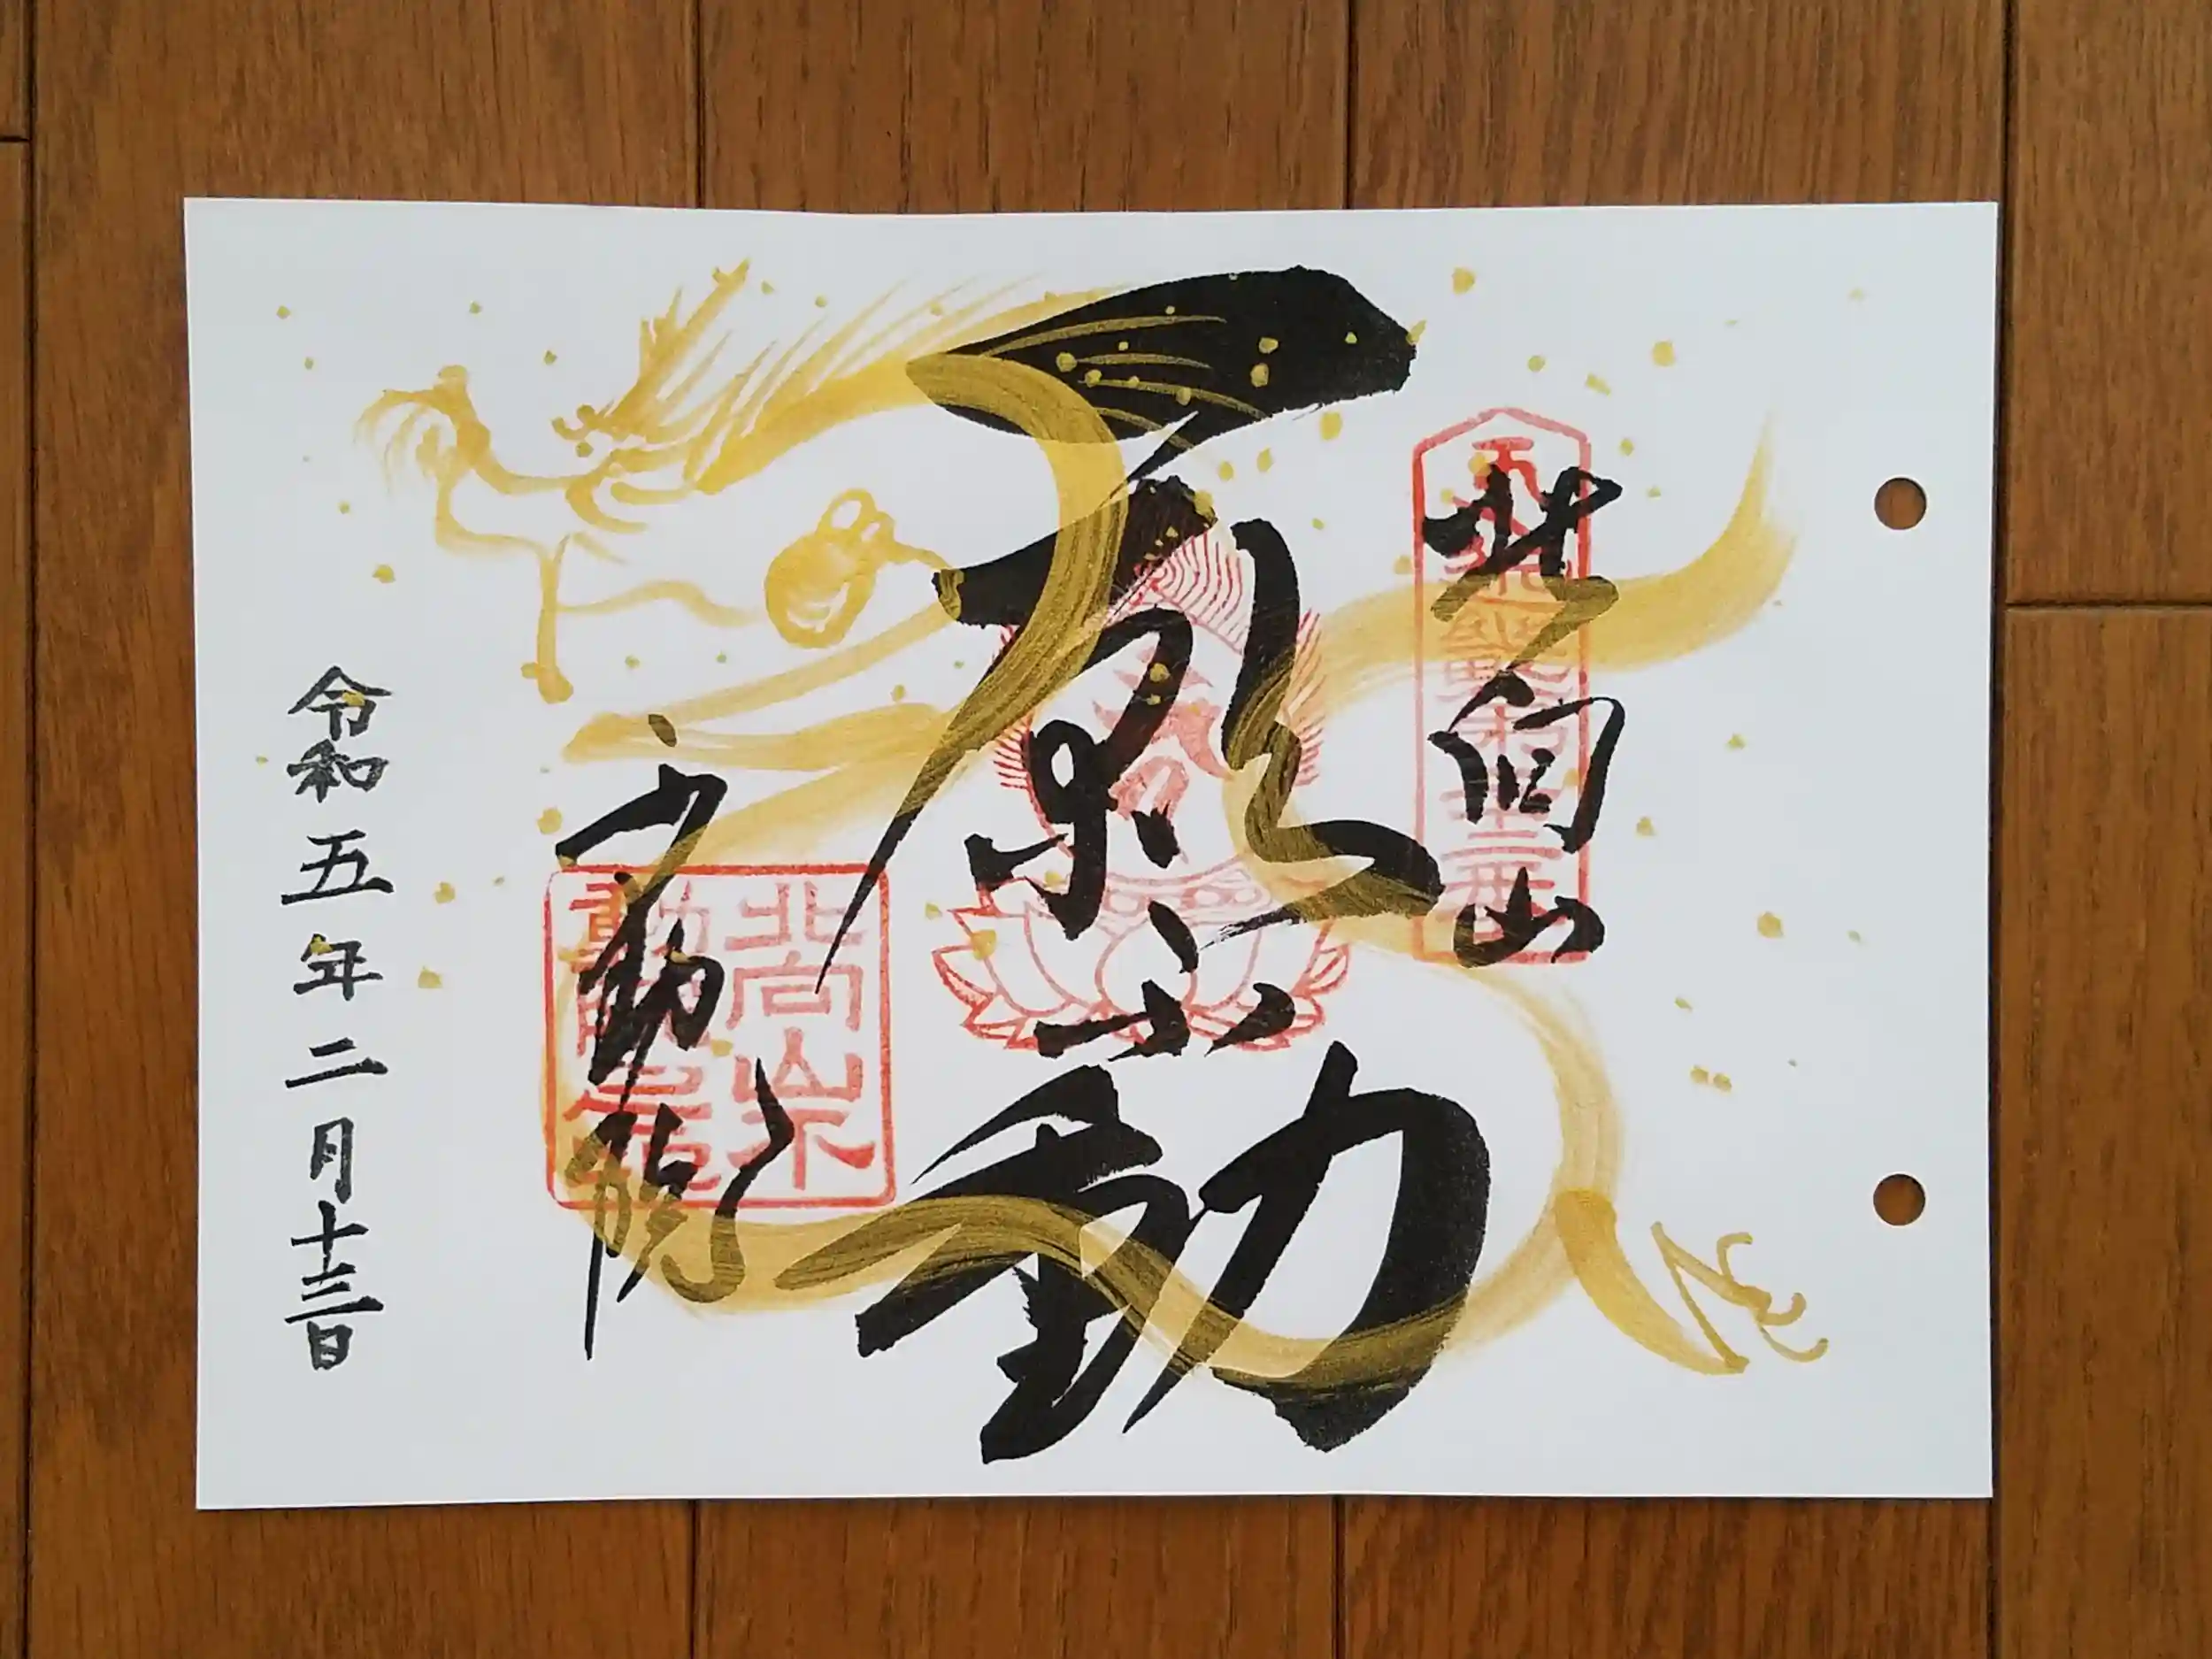 北向山
一願不動
不動院
北向山不
令和五年二月十三日